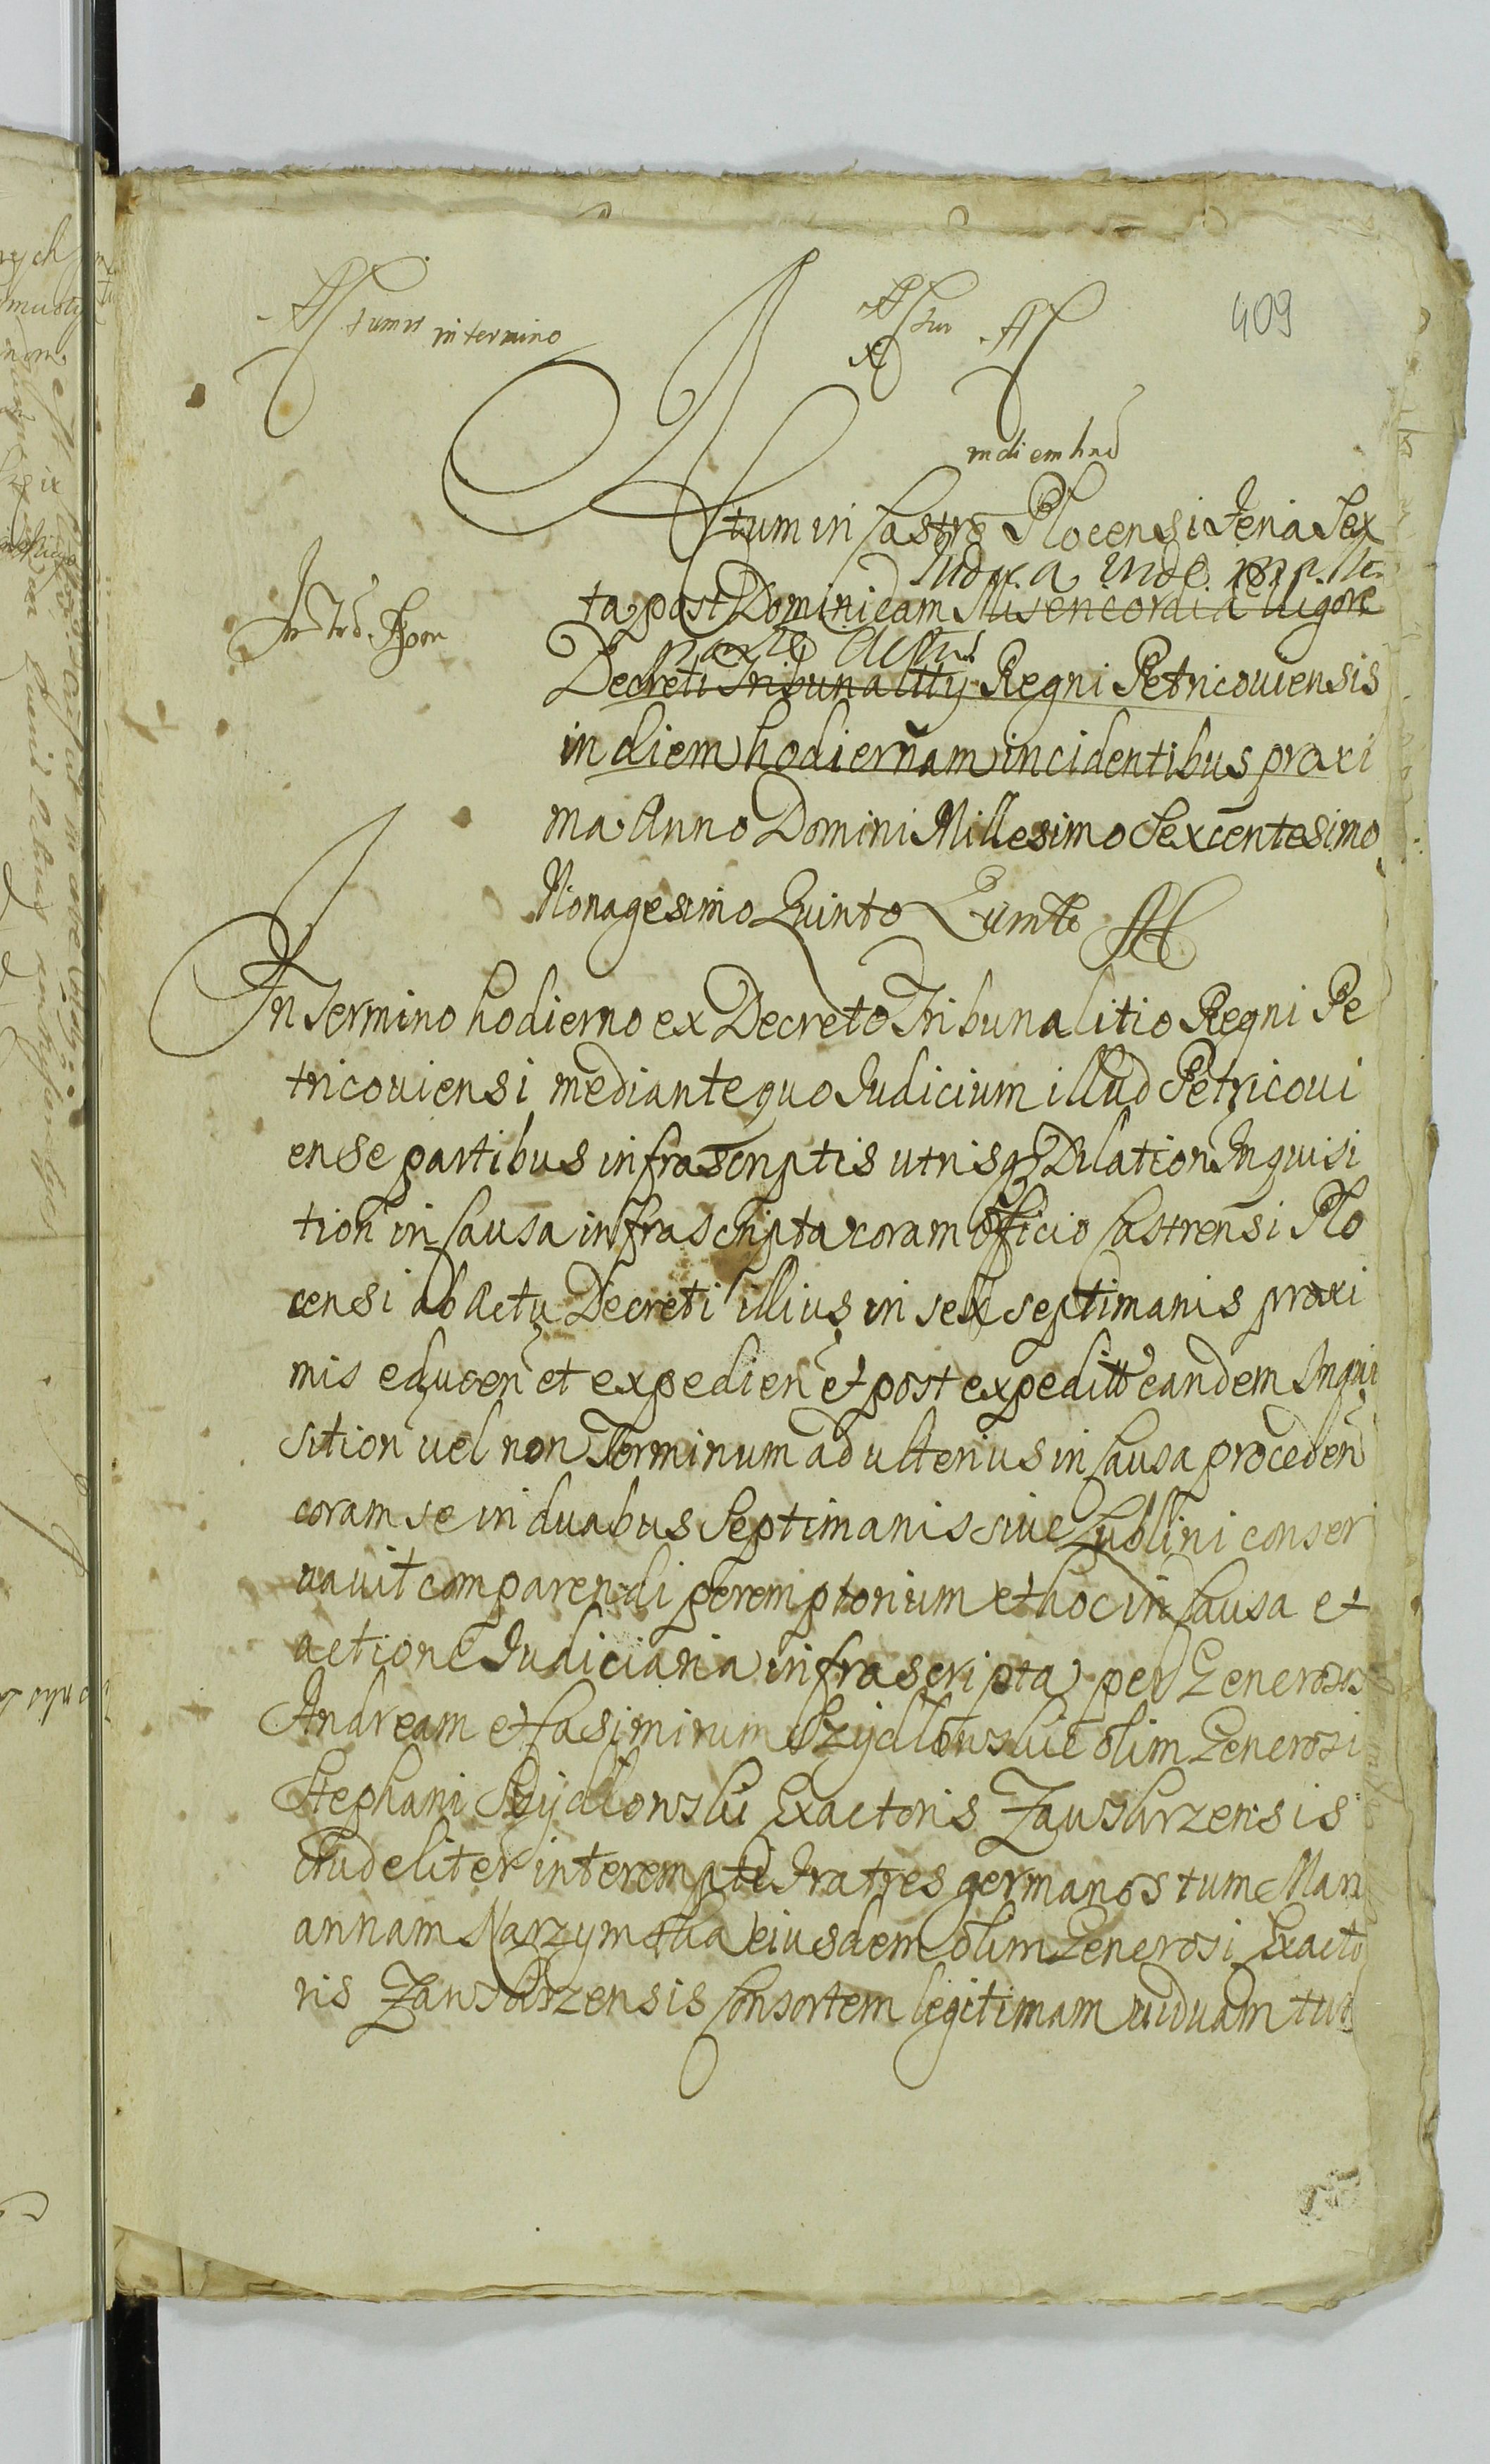 409
Actum in termino
Actum
in diem hod
Actum in Castro Plocensi Feria Sex
Iudex a inde
ta post Dominicam Misericordia Vigore
parte Actus
Decreti Tribunalitij Regni Petricouiensis
in diem hodiernam incidentibus proxi
ma Anno Domini Millesimo Sexcentesimo
Nonagesimo Quinto
In Termino hodierno ex Decreto Tribunalitio Regni Pe
tricouiensi mediante quo Iudicium illud Petricoui
ense partibus infrascriptis utrisq Dilation Inquisi
tion in Causa infrascripta coram Officio Castrensi Plo
censi ab Actu Decreti illius in sex septimanis proxi
mis educen et expedien et post expedit eandem Inqui
sition uel non Terminum ad ulterius in Causa proceden
coram se in duabus Septimanis siue Lublini conser
uauit comparendi peremptorium et hoc in Causa et
actione Iudiciaria infrascripta per Generosos
Andream et Casimirum Szydlowskie olim Generosi
Stephani Szydlowski Exactoris Zawskrzensis
crudeliter interempti Fratres germanos tum Mari
annam Narzymska eiusdem olim Generosi Exacto
ris Zawskrzensis Consortem legitimam uiduam tut